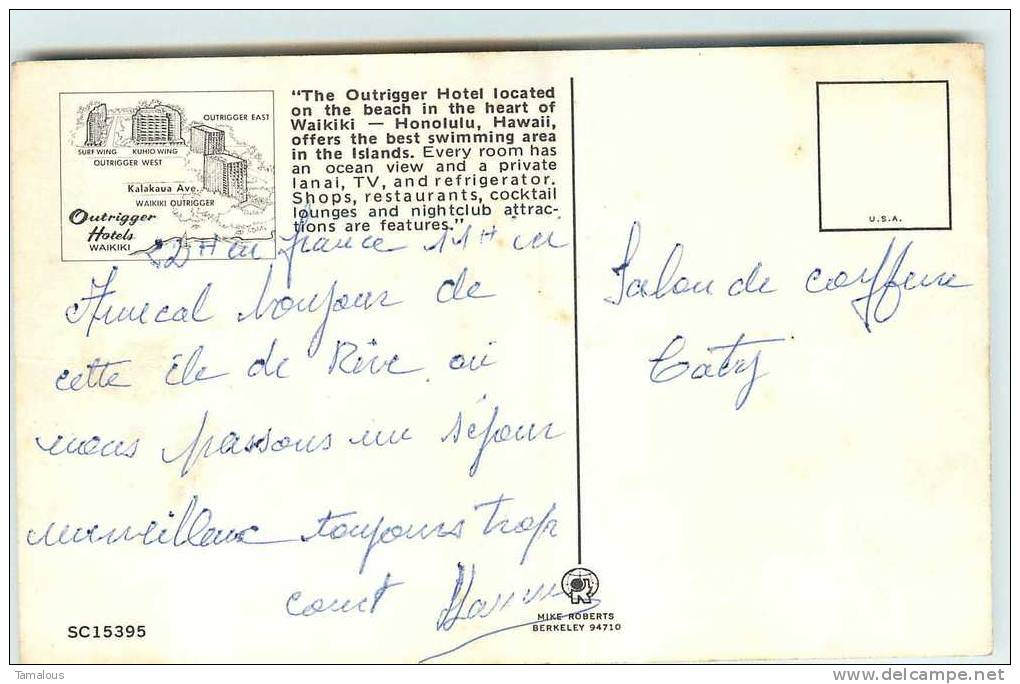 OUTRIGGER EAST
SURF WING
KUHIO WING
OUTRIGGER WEST
Kalakaua Ave.
WAIKIKI OUTRIGGER
Outrigger
Hotels
WAIKIKI
"The Outrigger Hotel located
on the beach in the heart of
Waikiki — Honolulu, Hawaii,
offers the best swimming area
in the Islands. Every room has
an ocean view and a private
lanai, TV, and refrigerator.
Shops, restaurants, cocktail
lounges and nightclub attrac-
tions are features."
22H en france 11H en
bonjour de
cette île de Rêve où
nous passons un séjour
merveilleux toujours trop
court
U.S.A.
Salon de coiffure
Caty
MIKE ROBERTS
BERKELEY 94710
SC15395
Tamalous
www.delcampe.net